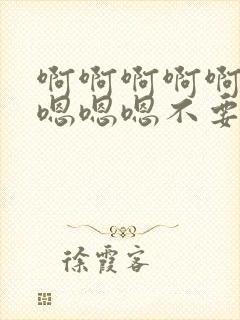 啊啊啊啊啊
嗯嗯嗯不要
徐霞客